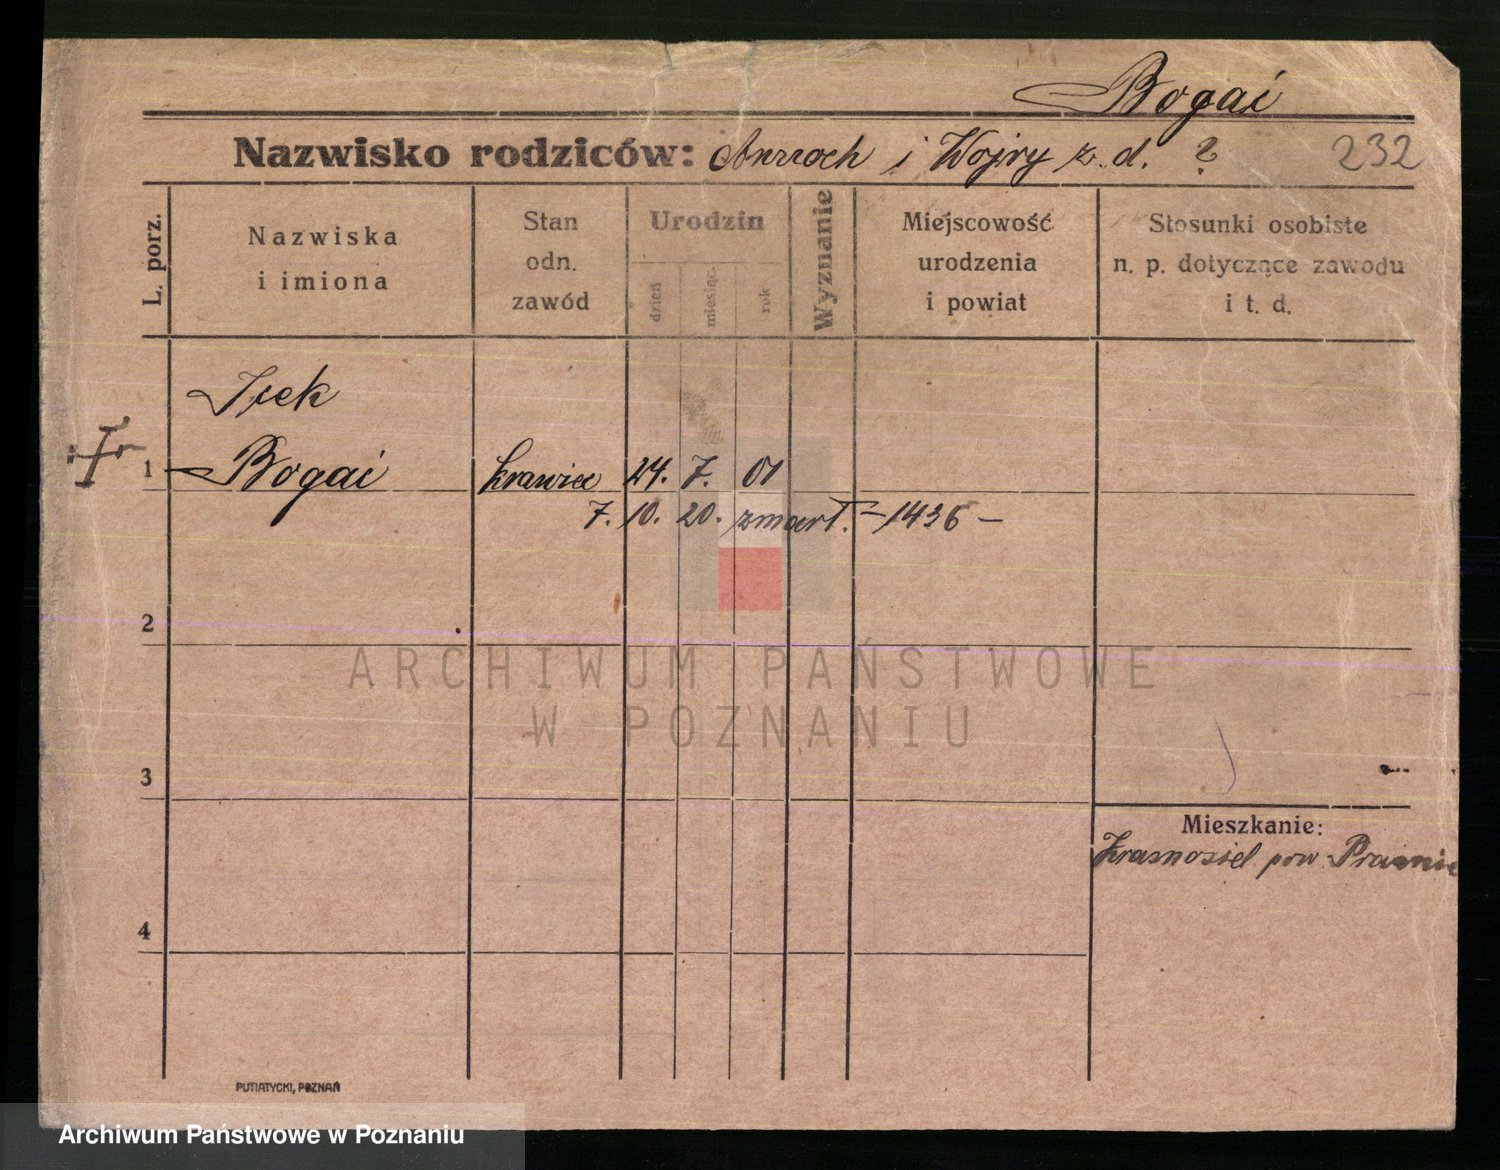 Bogai
Nazwisko rodziców: i z. d. ?
232
L. porz.
Nazwiska
i imiona
Stan
odn.
zawód
Urodzin
dzień
miesiąc.
rok
Wyznanie
Miejscowość
urodzenia
i powiat
Stosunki osobiste
n. p. dotyczące zawodu
i t. d.
Icek
1 Bogai krawiec 24. 7. 01
7. 10. 20. zmarł. – 1436 –
2
3
4
Mieszkanie:
Krasnosiel pow.
PUTIATYCKI, POZNAŃ
ARCHIWUM PAŃSTWOWE
W POZNANIU
Archiwum Państwowe w Poznaniu